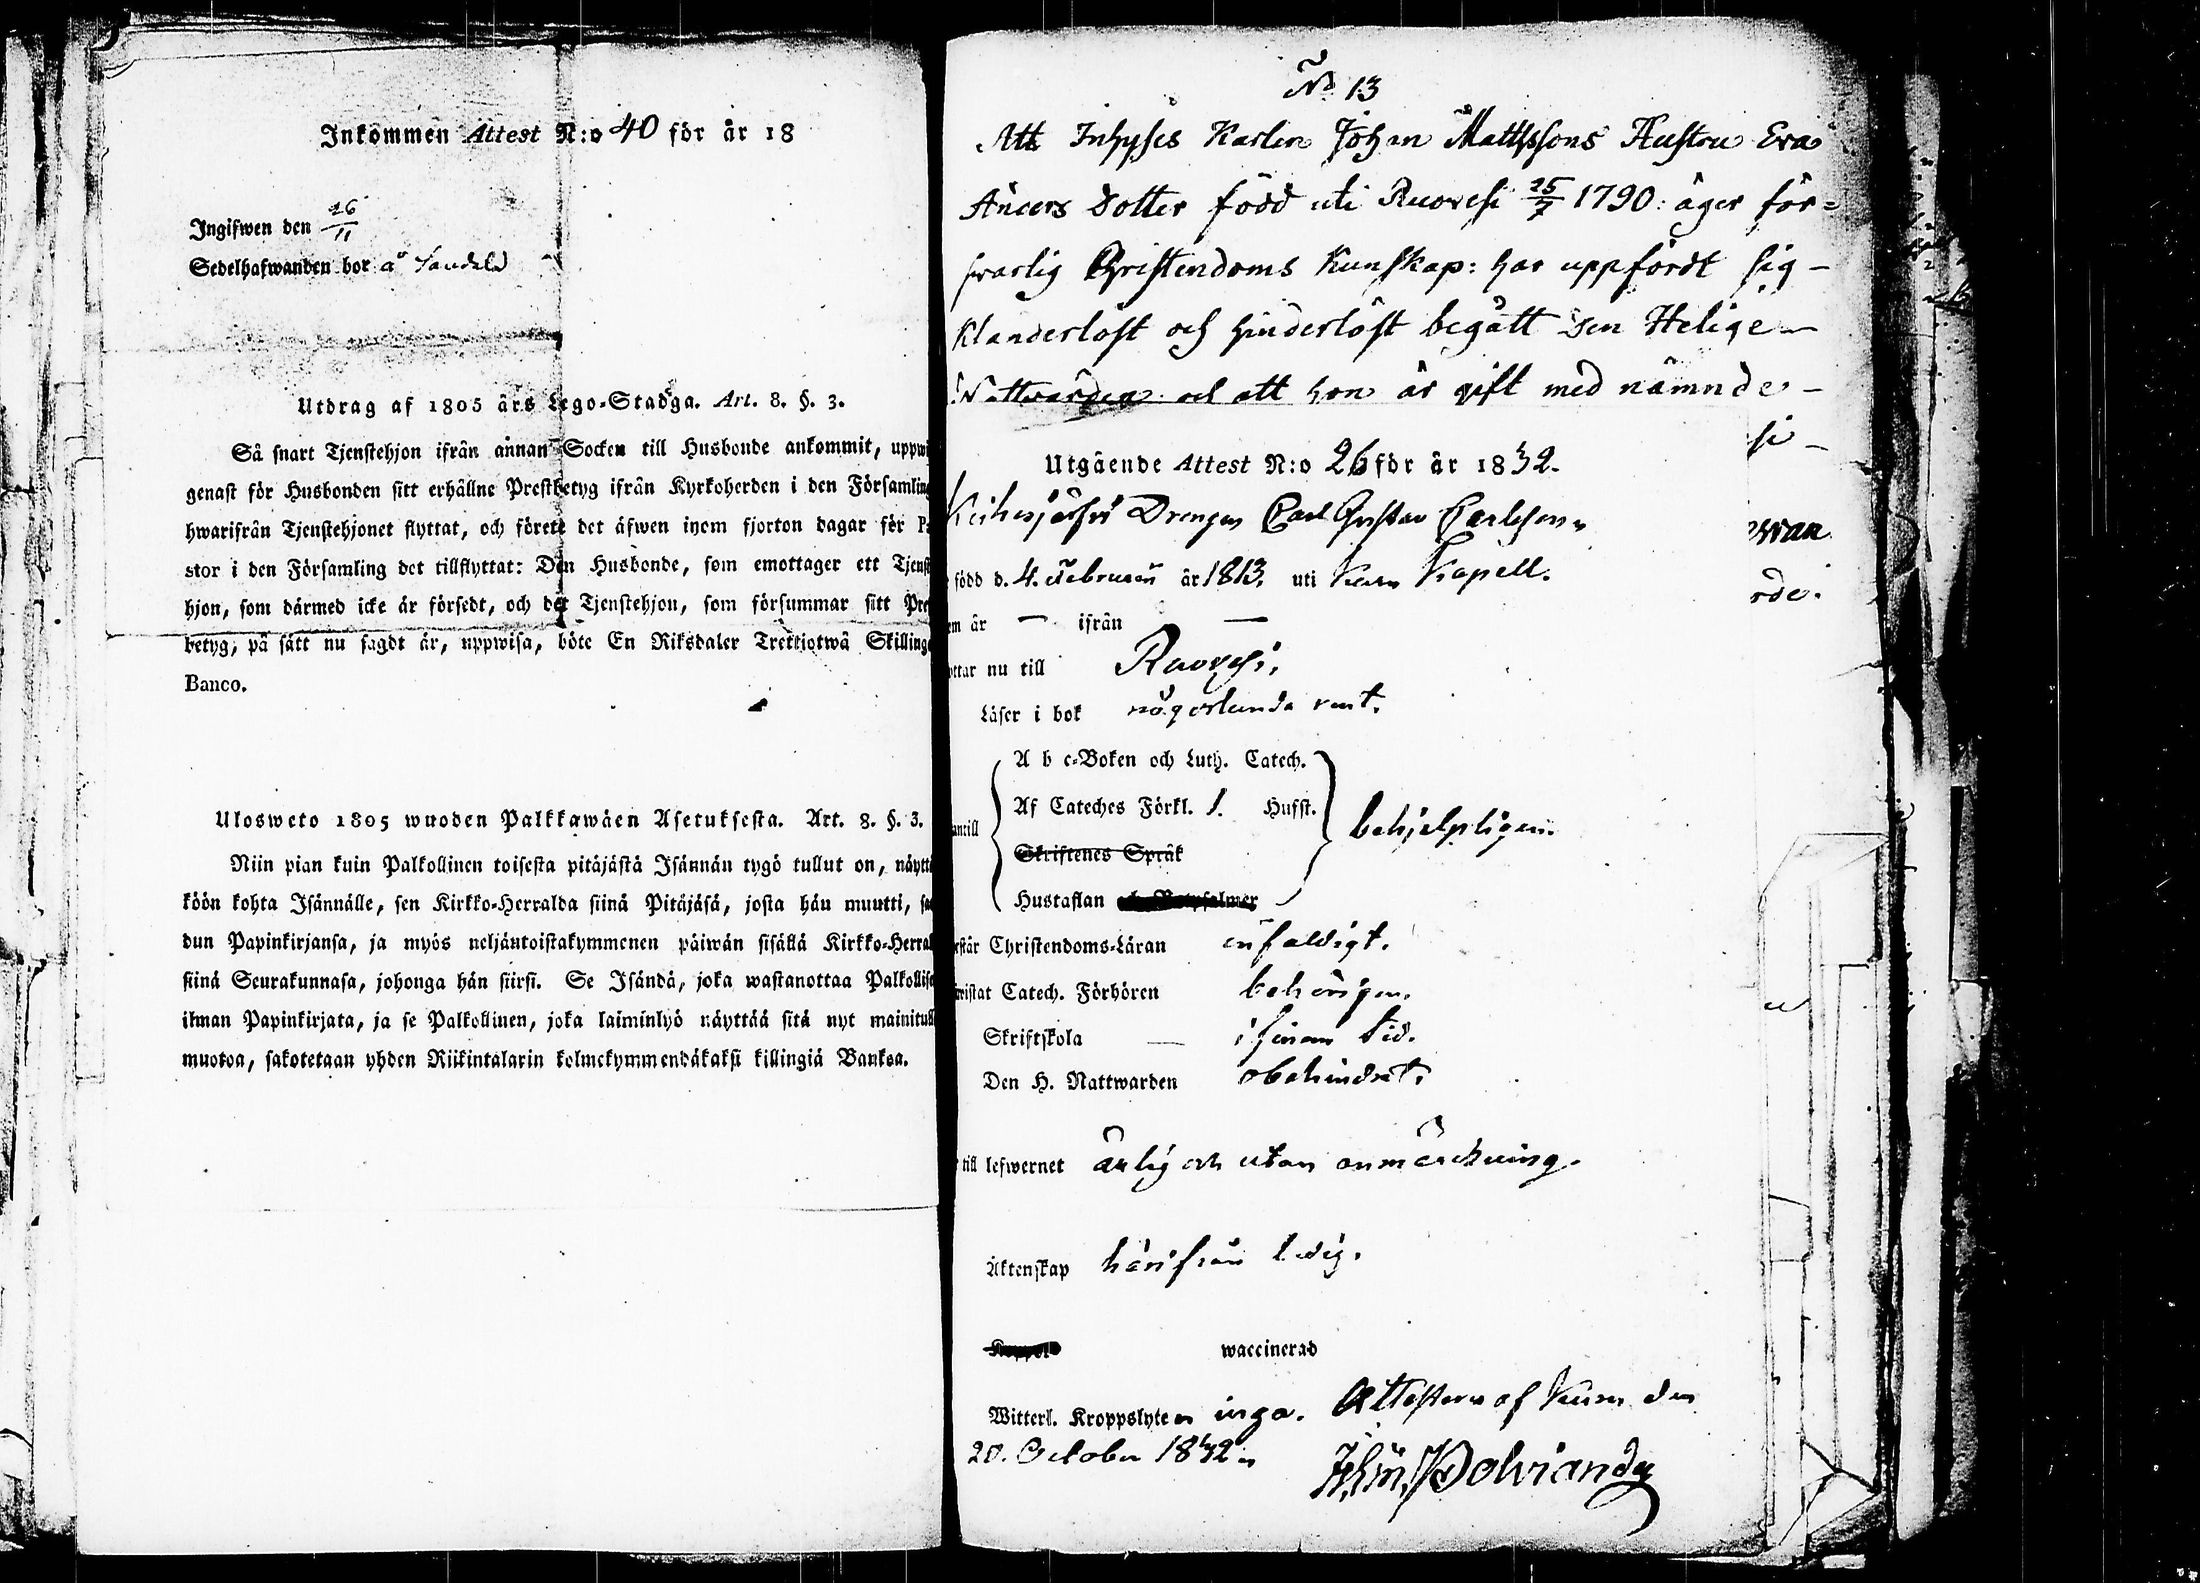 Inkommen Attest N:o 40 för år 18
Ingifwen den 26/11
Sedelhafwanden bor å
Utdrag af 1805 års Lego-Stadga. Art. 8. §. 3.
Så snart Tjenstehjon ifrån annan Socken till Husbonde ankommit, uppwi
genast för Husbonden sitt erhållne Prestbetyg ifrån Kyrkoherden i den Församling
hwarifrån Tjenstehjonet flyttat, och förete det äfwen inom fjorton dagar för Pa
stor i den Församling det tillflyttat: Den Husbonde, som emottager ett Tjenst
hjon, som därmed icke är försedt, och det Tjenstehjon, som försummar sitt Pre
betyg, på sätt nu sagdt är, uppwisa, böte En Riksdaler Trettiotwå Skillinge
Banco.
Ulosweto 1805 wuoden Palkkawäen Asetuksesta. Art. 8. §. 3.
Niin pian kuin Palkollinen toisesta pitäjästä Isännän tygö tullut on, näyttä
köön kohta Isännälle, sen Kirkko-Herralda siinä Pitäjäsä, josta hän muutti, sa
dun Papinkirjansa, ja myös neljäntoistakymmenen päiwän sisällä Kirkko-Herral
siinä Seurakunnasa, johonga hän siirsi. Se Isändä, joka wastanottaa Palkollise
ilman Papinkirjata, ja se Palkollinen, joka laiminlyö näyttää sitä nyt mainitull
muotoa, sakotetaan yhden Riikintalarin kolmekymmendäkaksi killingiä Bankoa.
No 13
Att Inhyses Karlen Johan Mattssons Hustru Eva
Anders dotter född uti Ruovesi 25/7 1790: äger för=
svarlig Christendoms Kunskap: har uppfördt sig -
Klanderlöst och hinderlöst begått den Helige -
Nattvarden och att hon är gift med nämnde -
si -
Utgående Attest N:o 26 för år 1832.
Keihesjärfvi Drengen Carl Gustav Carlsson
född d. 4. Februarii år 1813. uti Kuru Kapell.
em år — ifrån —
ottar nu till Ruovesi.
rde.
Läser i bok någorlunda rent.
A b c-Boken och Luth. Catech.
Af Cateches Förkl. 1. Hufst.
antill behjelpligen.
Skriftenes Språk
Hustaflan
rstår Christendoms-Läran enfaldigt.
wistat Catech. Förhören behörigen.
Skriftskola — i sinom tid.
Den H. Nattwarden obehindrat.
till lefwernet ärlig och utan anmärckning.
Äktenskap härifrån ledig.
waccinerad
Witterl. Kroppslyten inga. Attesteras af Kuru den
20. October 1832